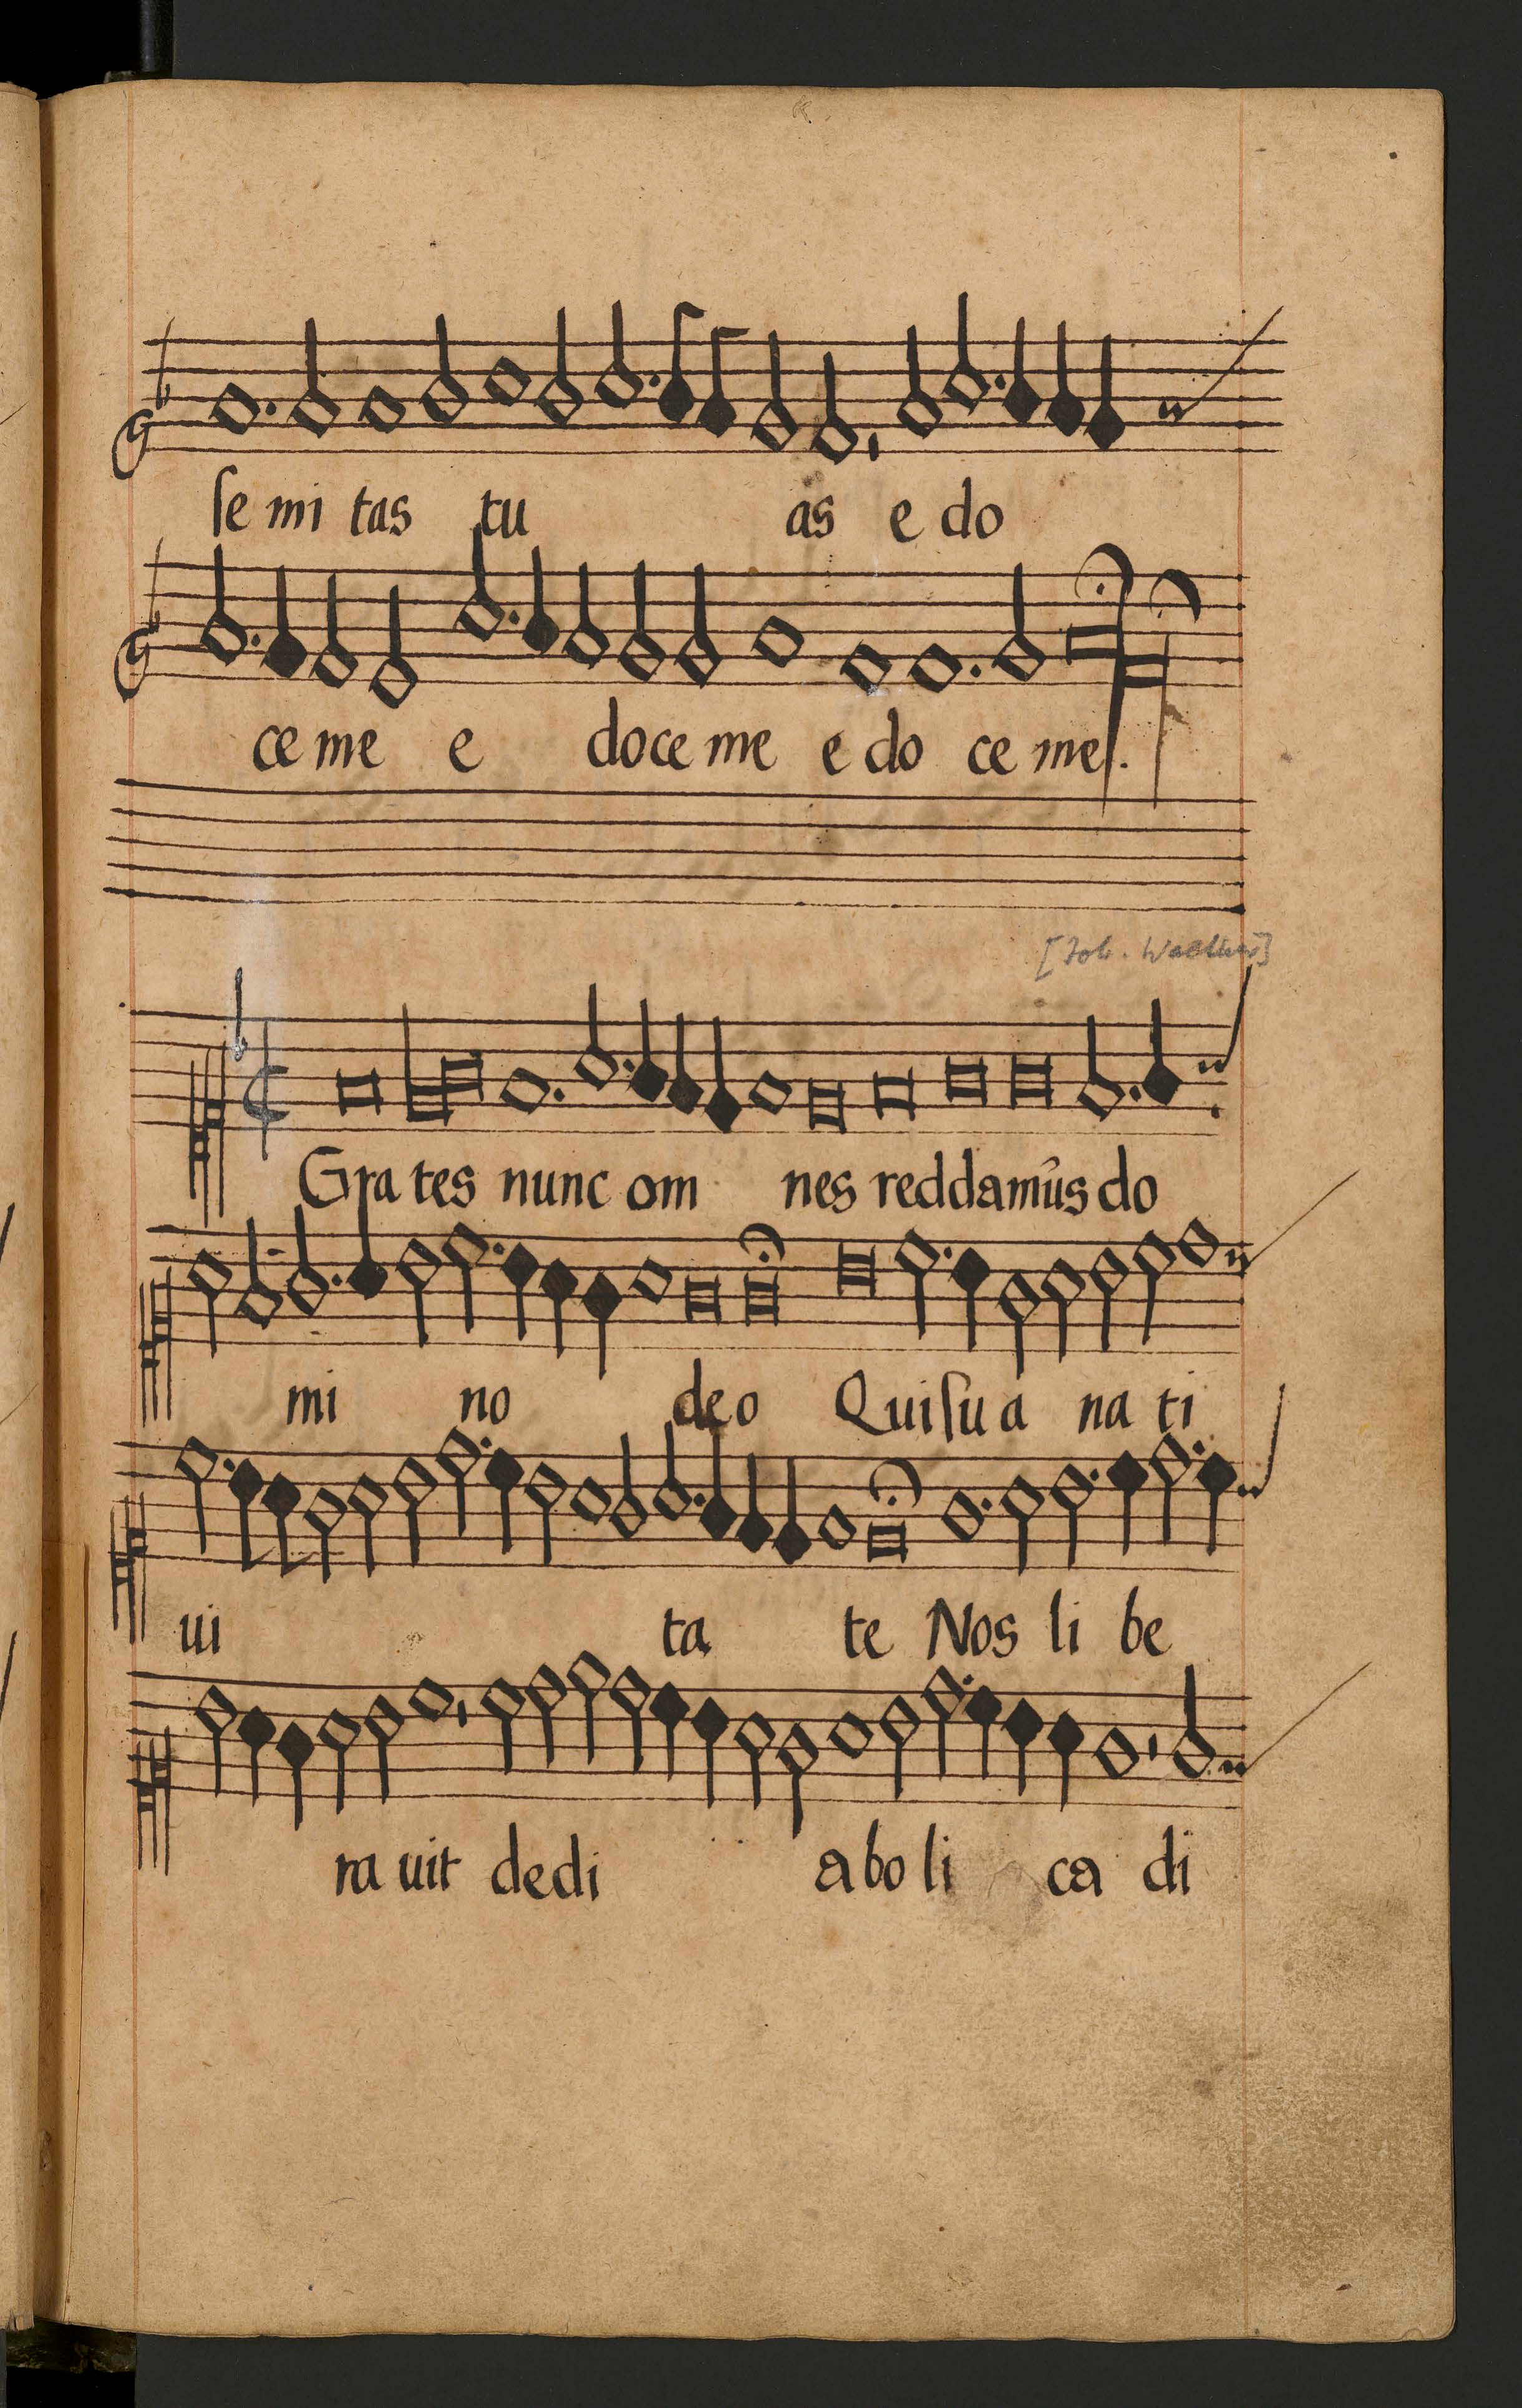 ſe mi tas tu as e do
ce me e do ce me e do ce me.
[Joh. Walther]
Gra tes nunc om nes reddamûs do
mi no de o Qui ſu a na ti
ui ta te Nos li be
ra uit de di a bo li ca di